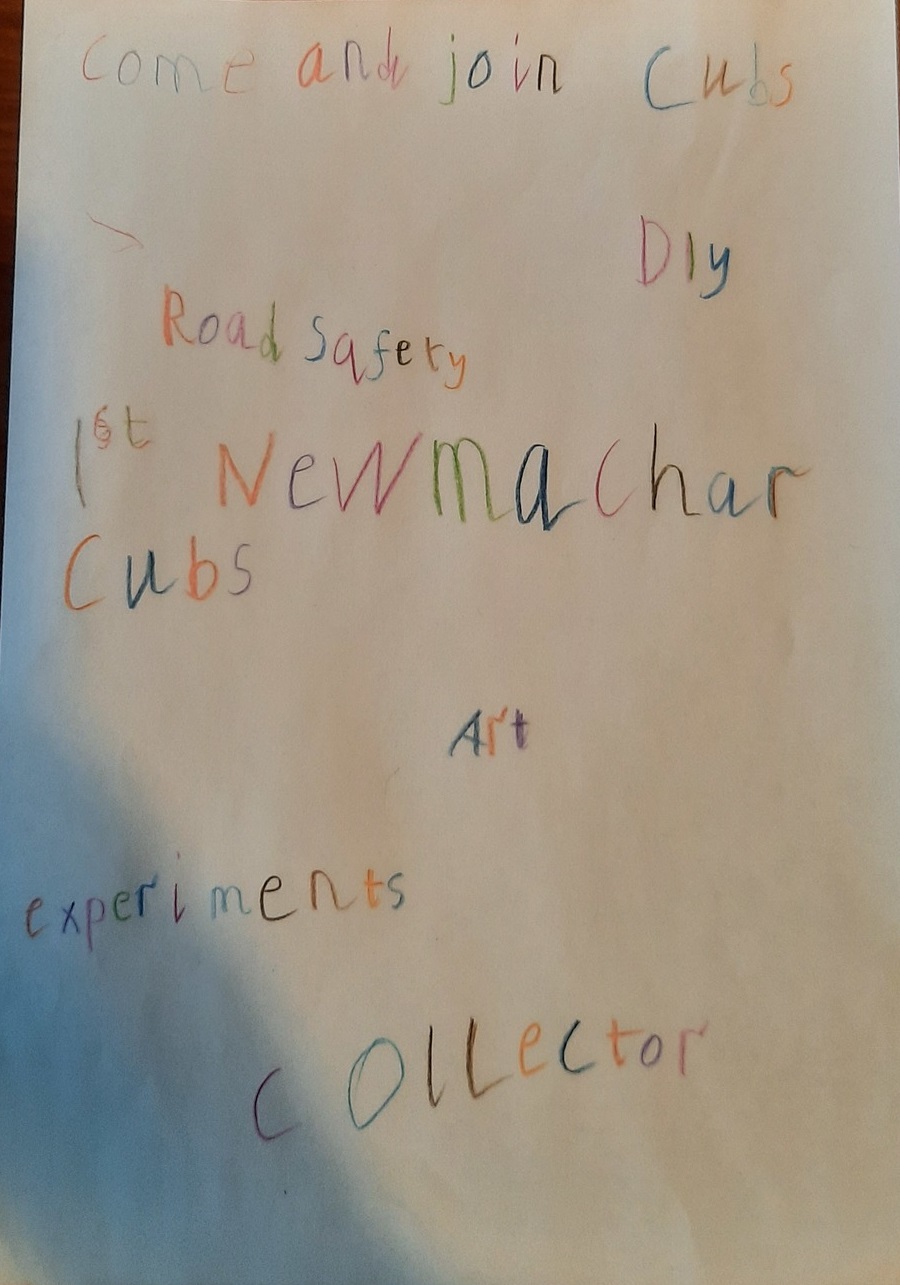 Come and join Cubs
DIy
Road Safety
1st Newmachar
Cubs
Art
experiments
cOllector